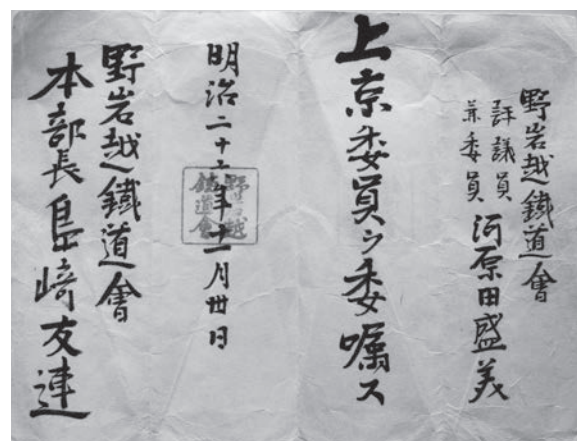 野岩越鐵道會
評議員
兼委員
河原田盛美
上京委員ヲ委嘱ス
明治二十年十一月卅日
野岩越
鐵道會
野岩越鐵道會
本部長島﨑友連